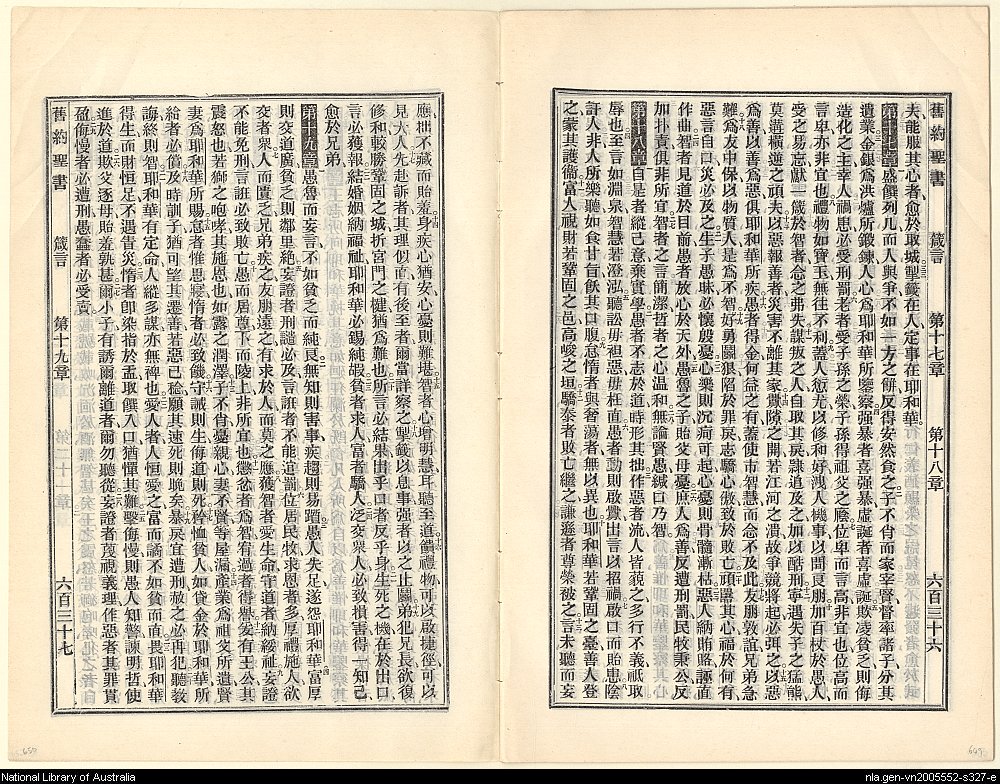 舊約聖書 箴言 第十七章 第十八章 六百三十六
夫能服其心者愈於取城掣籤在人定事在耶和華
第十七章盛饌列几而人與爭不如一方之餅反得安然食之子不肖而家宰賢督率諸子分其
遺業金銀爲洪爐所鍛鍊人心爲耶和華所鑒察强暴者喜强暴虛誕者喜虛誕欺凌貧乏則侮
造化之主幸人禍患必受刑罰老者受子孫之榮子孫得祖父之廕位卑而言高非宜也位高而
言卑亦非宜也禮物如寶玉無往不利蓋人愆尤以修和好洩人機事以間良朋加百杖於愚人
受之易忘獻一箴於智者念之弗失謀叛之人自取其戾隸追及之加以酷刑寧遇失子之猛熊
莫遘橫逆之頑夫以惡報善者災害不離其家釁隙之開若江河之潰故爭競將起必弭之以惡
爲善以善爲惡俱耶和華所疾愚者得金何益之有蓋使市智慧而念不及此友朋敦誼兄弟急
難爲友中保以物質人是爲不智好勇鬬狠陷於罪戾志驕心傲致於敗亡頑嚚其心福於何有
惡言自口災必及之生子愚昧必懷殷憂心樂則沉疴可起心憂則骨髓漸枯惡人納賄賂誣直
作曲智者見道於目前愚者放心於天外愚魯之子貽父母憂庶人爲善反遭刑罰民牧秉公反
加扑責俱非所宜智者之言簡潔哲者之心溫和無論賢愚緘口乃智
第十八章自是者縱己意棄實學愚者不志於道時形其拙作惡者流人皆藐之多行不義祇取
辱也至言如淵泉智慧若澄泓聽訟毋袒惡毋枉直愚者動則啟釁出言以招禍啟口而貽患陰
訐人非人所樂聽如食甘旨飫其口腹怠惰者與奢蕩者無以異也耶和華若鞏固之臺善人登
之蒙其護衛富人視財若鞏固之邑高峻之垣驕泰者敗亡繼之謙遜者尊榮被之言未聽而妄
應拙不藏而貽羞身疾心猶安心憂則難堪智者心增明慧耳聽至道饋禮物可以啟捷徑可以
見大人先赴訴者其理似直有後至者爾當詳察之掣籤以息事强者以之止鬬弟犯兄長欲復
修和較勝鞏固之城折宮門之楗猶爲難也所言必結果出乎口者反乎身生死之機在於出口
言必獲報結婚姻納福祉耶和華必錫純嘏貧者求人富者驕人泛交衆人必致損害得一知己
愈於兄弟
第十九章愚魯而妄言不如貧乏而純良無知則害事疾趨則易躓愚人失足遂怨耶和華富厚
則交道廣貧乏則鄰里絶妄證者刑譴必及言誑者不能逭罰位居民牧求恩者多厚禮施人欲
交者衆人而貧乏兄弟疾之友朋遠之有求於人而莫之應獲智者愛生命守道者納綏祉妄證
不能免刑言誑必致敗亡愚而居尊下而陵上非所宜也懲忿者爲智宥過者得譽王公其
震怒也若獅之咆哮其施恩也如露之潤澤子不肖憂親心妻不賢等屋漏產業爲祖父所遺賢
妻爲耶和華所賜怠者惟思寢惰者必致饑守誡則生侮道則死矜恤貧人如貸金於耶和華所
給者必償及時訓子猶可望其遷善若惡已稔願其速死則晚矣暴戾宜遭刑赦之必再犯聽敎
誨終則智耶和華有定命人縱多謀亦無裨也愛人者人恒愛之富而譎不如貧而直畏耶和華
得生而財恒足不遇眚災惰者卽染指於盂取饌入口猶憚其難擊侮慢則愚人知警諫明哲使
進於道欺父逐母貽羞孰甚爾小子有誘爾離道者爾勿聽從妄證者蔑視義理作惡者其罪貫
盈侮慢者必遭刑愚蠢者必受責
舊約聖書 箴言 第十九章 六百三十七
National Library of Australia
nla.gen-vn2005552-s327-e